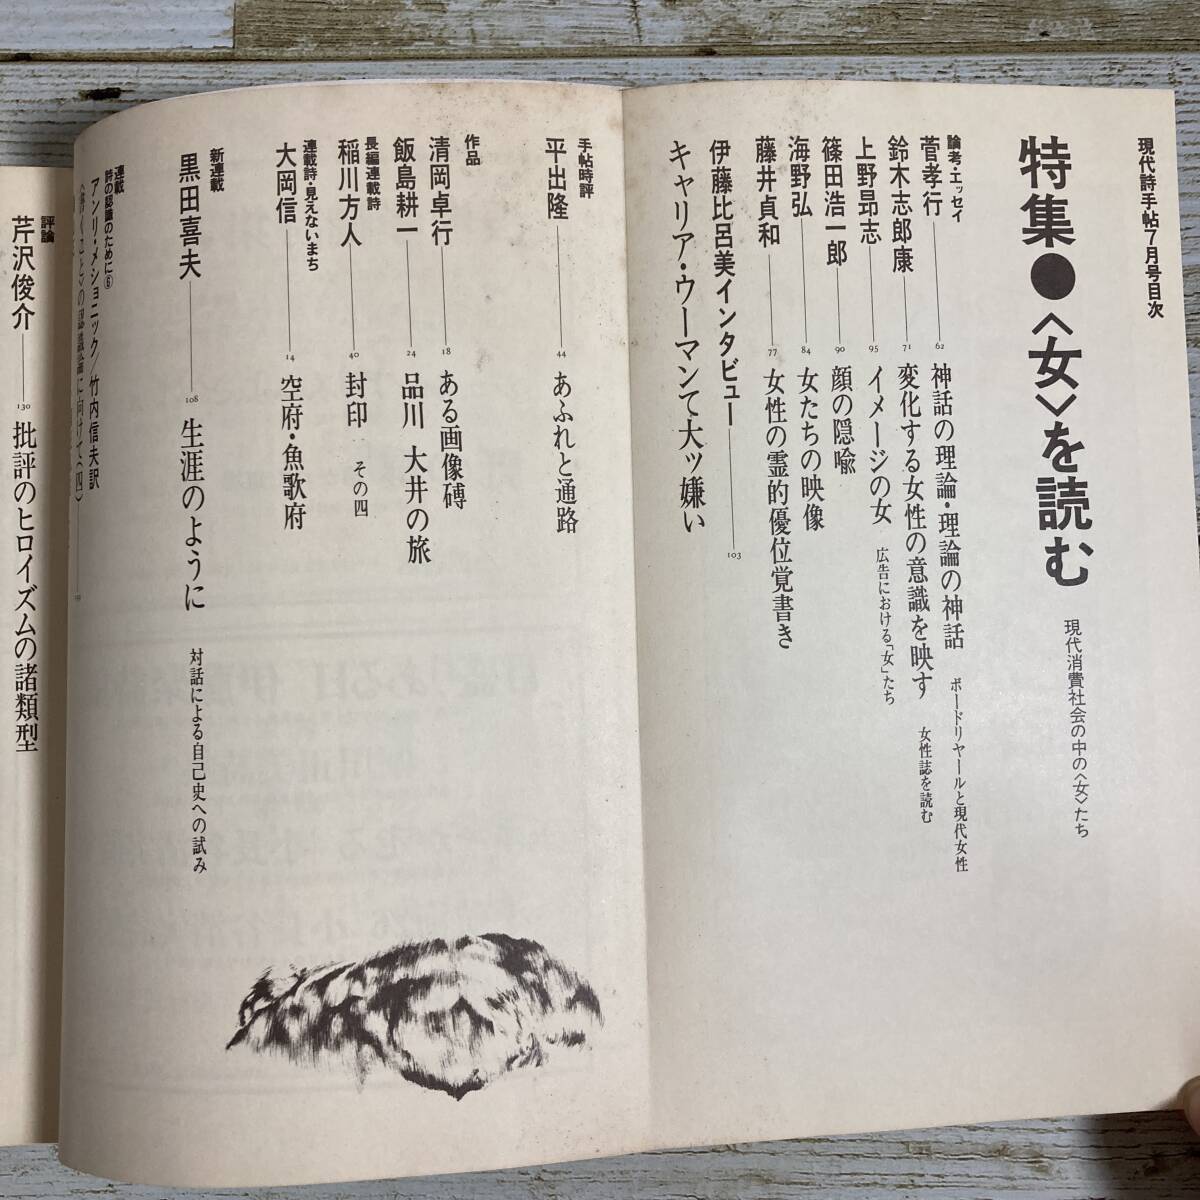 現代詩手帖7月号目次
特集●〈女〉を読む 現代消費社会の中の〈女〉たち
論考・エッセイ
菅孝行 62 神話の理論・理論の神話 ボードリヤールと現代女性
鈴木志郎康 71 変化する女性の意識を映す 女性誌を読む
上野昻志 95 イメージの女 広告における「女」たち
篠田浩一郎 90 顔の隠喩
海野弘 84 女たちの映像
藤井貞和 77 女性の霊的優位覚書き
伊藤比呂美インタビュー 103
キャリア・ウーマンて大ッ嫌い
手帖時評
平出隆 44 あふれと通路
作品
清岡卓行 18 ある画像磚
飯島耕一 24 品川 大井の旅
長編連載詩
稲川方人 40 封印 その四
連載詩・見えないまち
大岡信 14 空府・魚歌府
新連載
黒田喜夫 108 生涯のように 対話による自己史への試み
連載
詩の認識のために⑥
アンリ・メショニック/竹内信夫訳
の認識論に向けて(四)
評論
芹沢俊介 130 批評のヒロイズムの諸類型